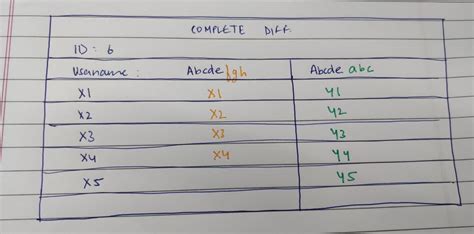 COMPLETE DIFF
ID: 6
Usename: Abcde fgh Abcde abc
X1 X1 Y1
X2 X2 Y2
X3 X3 Y3
X4 X4 Y4
X5 Y5